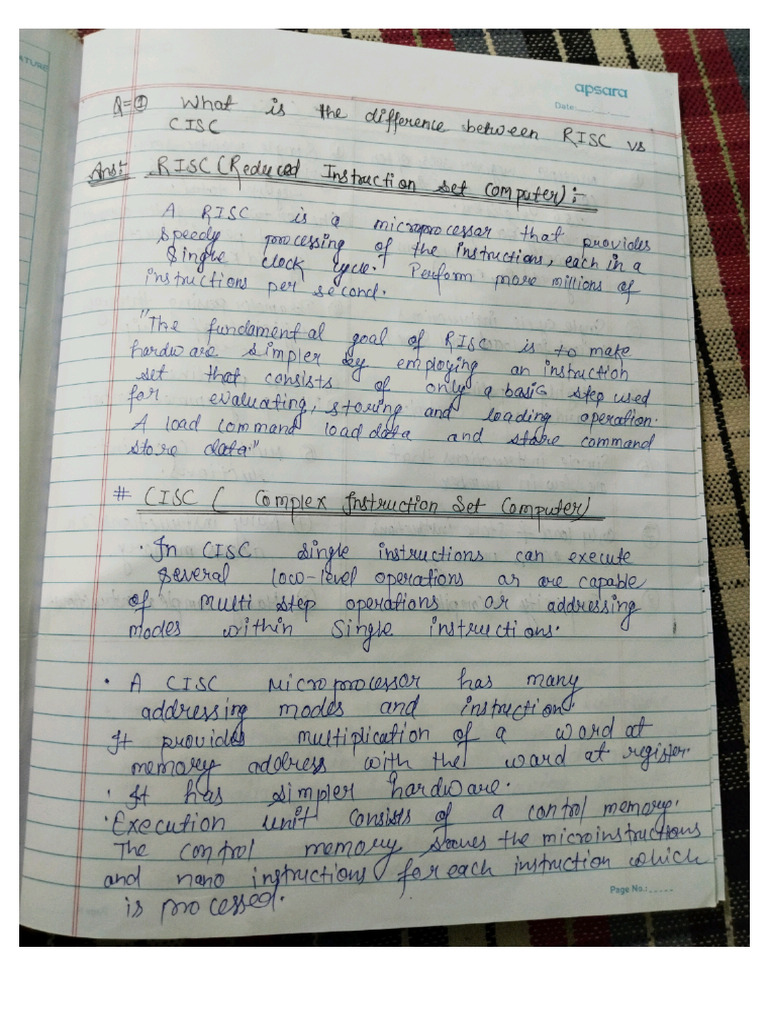 apsara
Date:
Q=① What is the difference between RISC vs
CISC
Ans:- RISC (Reduced Instruction set Computer):-
A RISC is a microprocessar that provides
speedy processing of the instructions, each in a
single clock cycle. Perform more millions of
instructions per second.
"The fundamental goal of RISC is to make
hardware simpler by employing an instruction
set that consists of only a basic step used
for evaluating, storing and loading operation.
A load command load data and store command
store data."
# CISC ( Complex Instruction Set Computer)
· In CISC single instructions can execute
several low-level operations or are capable
of multi step operations or addressing
modes within Single instructions.
· A CISC Microprocessor has many
addressing modes and instruction.
It provides multiplication of a word at
memory address with the word at register.
· It has simpler hardware.
· Execution unit consists of a control memory.
The control memory stores the microinstructions
and nano instructions for each instruction which
is processed.
Page No.: